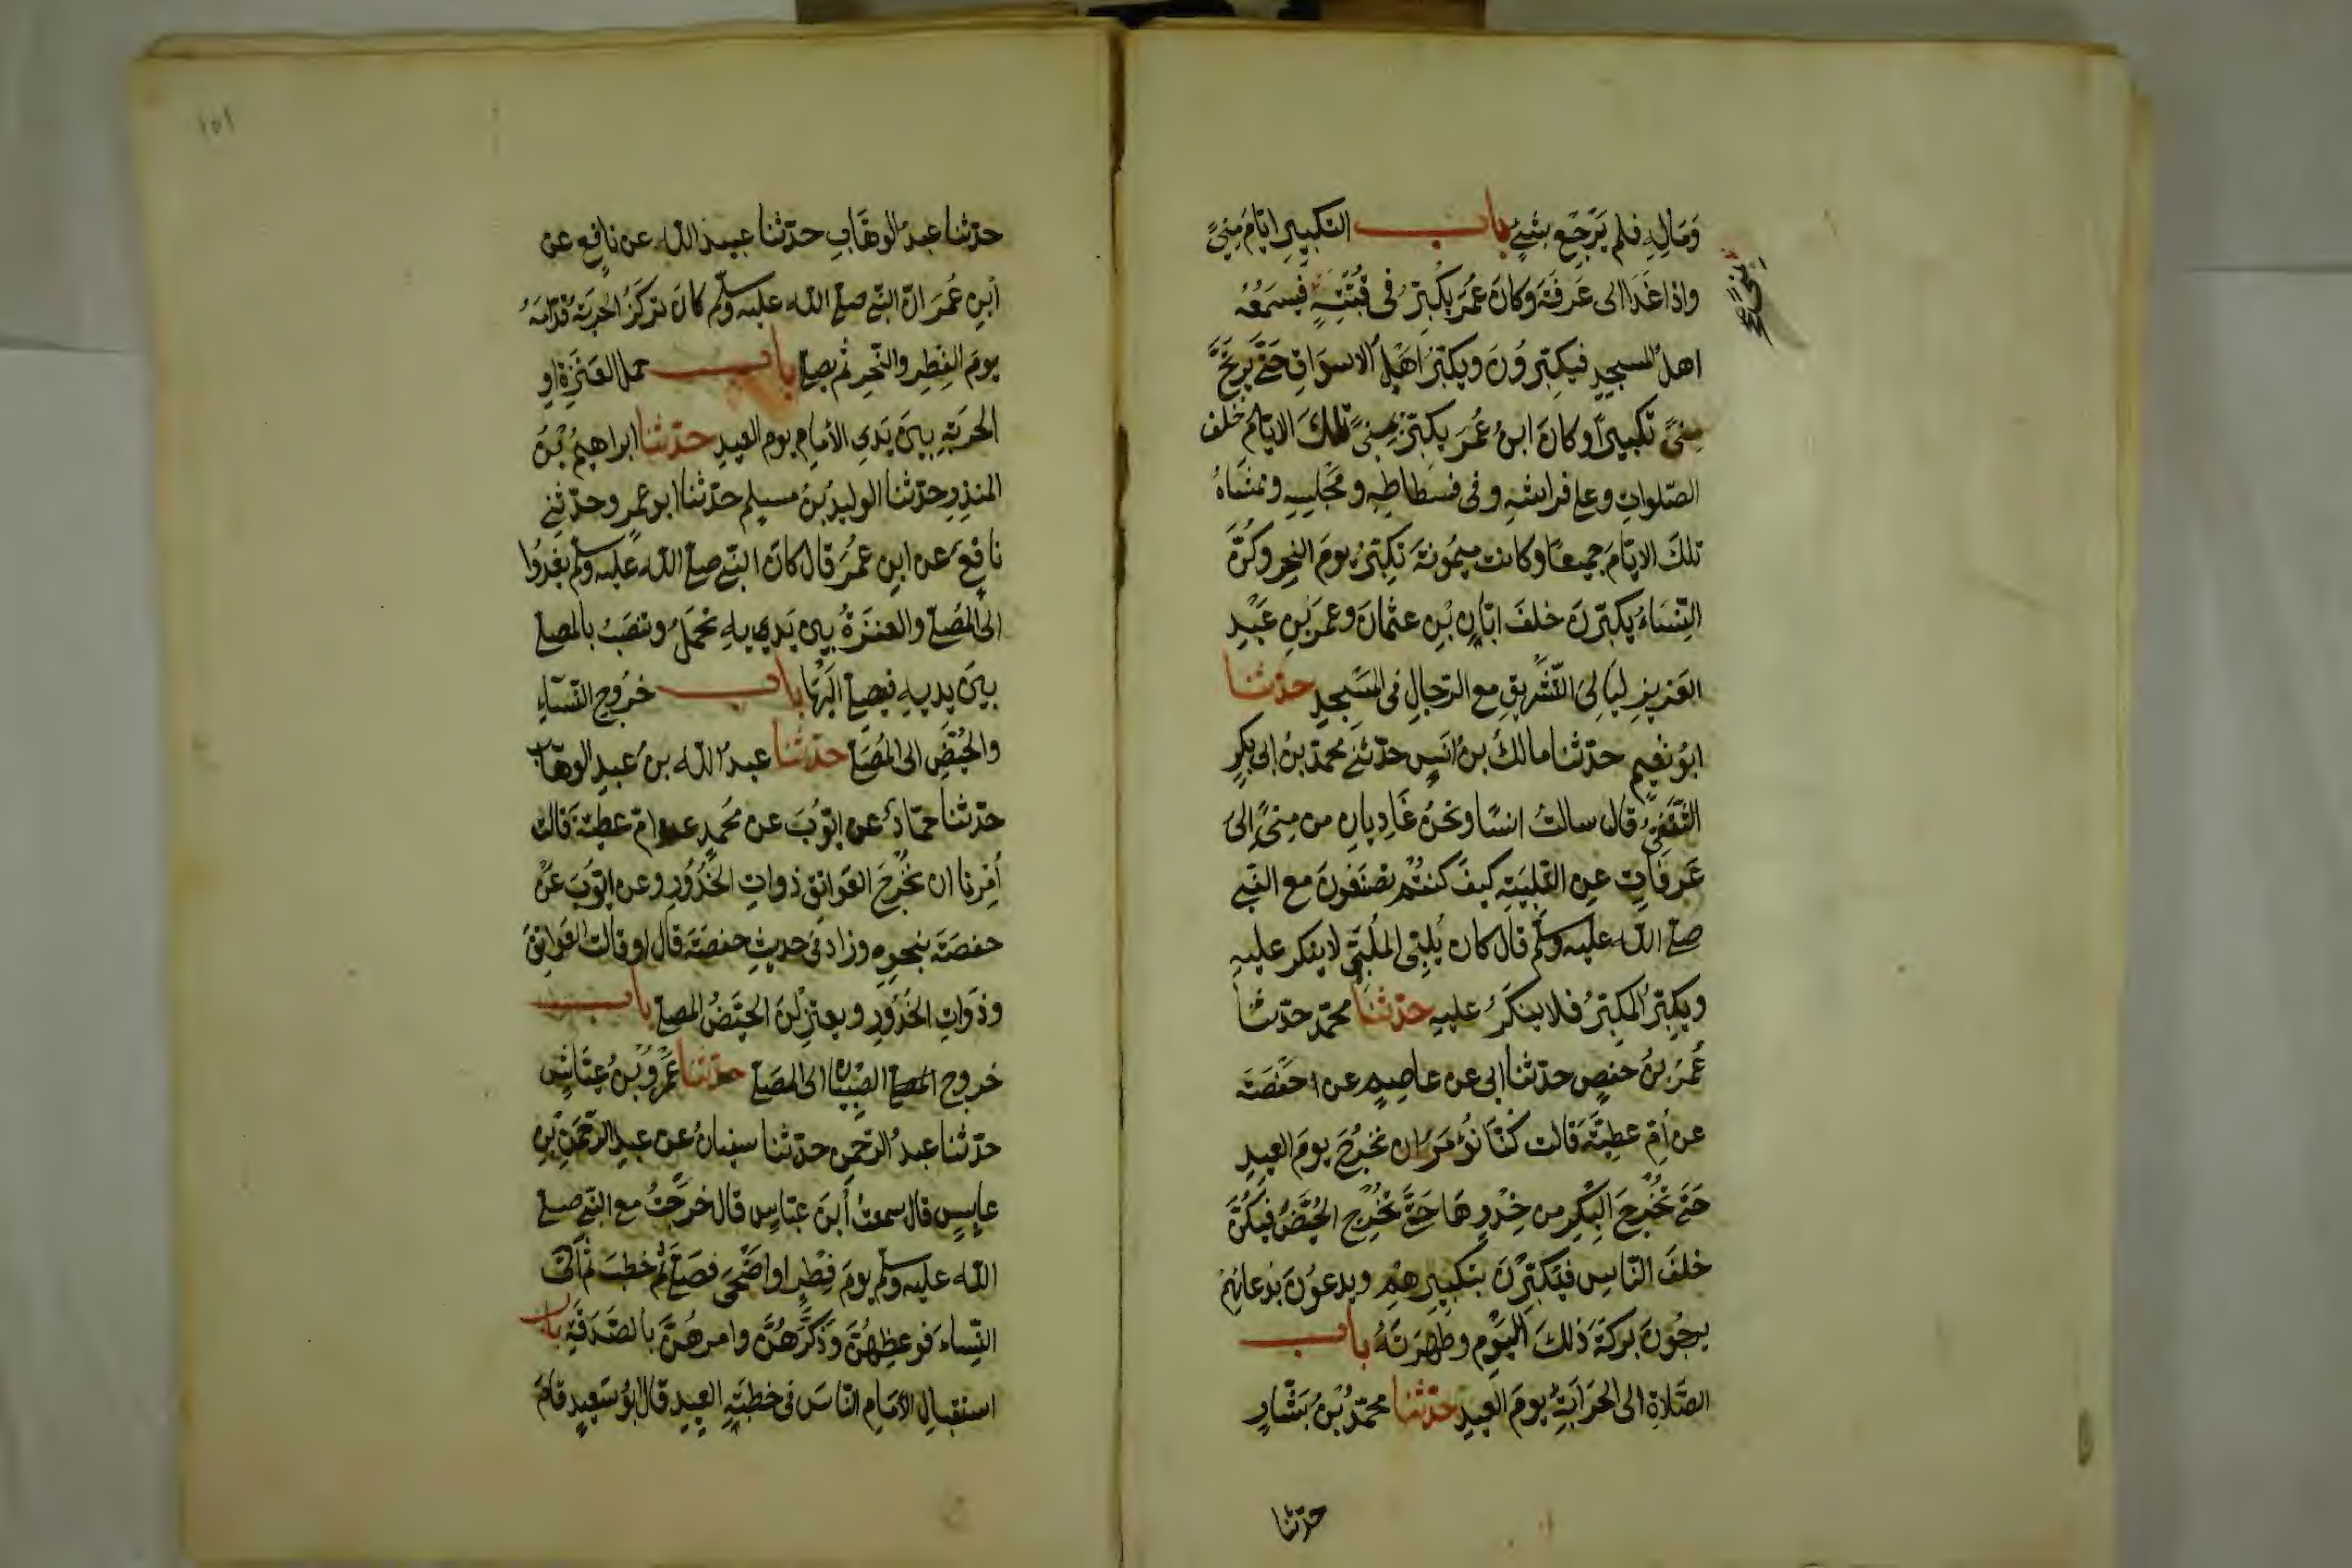 وَمَالِهِ فلم يَرْجِع بشَيْءٍ باب التكبيرِ ايّامَ مِنىً
واذا غَدَا الى عَرَفَة وَكانَ عُمَرُ يُكَبِّرُ فى قُبَّتِهِ فيَسْمَعُهُ
اهلُ المسجدِ فيكبّرُونَ ويكبّرُ اَهْلُ الاسوَاقِ حَتّى يَرْتَجَّ
مِنىً تكبيرًا وكانَ ابنُ عُمَرَ يكبّرُ بمِنىً تلكَ الايّامَ خلفَ
الصّلواتِ وعلى فراشهِ وفى فسطاطِهِ ومجلِسِهِ وممشَاهُ
تلكَ الايّامَ جميعًا وكانت ميمُونَة تكبّرُ يومَ النحرِ وكُنَّ
النِّسَاءُ يكبّرنَ خلفَ ابَانِ بْنِ عثمانَ وعمرَ بنِ عَبْدِ
العَزيزِ ليَالِىَ التّشْرِيقِ مع الرّجالِ فى المَسْجِدِ حدّثنا
ابُو نُعَيم حدّثنا مالكُ بنُ انَسٍ حدّثنى محمدُ بنُ ابى بكرٍ
الثّقَفِىُّ قال سالتُ انسًا ونحنُ غَادِيانِ من مِنىً الىَ
عَرَفَاتٍ عنِ التَّلبيَةِ كيفَ كنتُمْ تصنَعُونَ مع النّبي
صلى الله عليه وسلم قال كان يُلبِّى المُلَبِّى لا ينكر عليهِ
ويكبّرُ المكبّرُ فلا ينكَرُ عليهِ حدّثنا محمّد حدّثنا
عُمَرُ بنُ حفصٍ حدّثنا ابى عن عاصمٍ عن حَفْصَة
عن اُمِّ عطِيَّةَ قالت كُنّا نُؤمَرُ ان نخرُجَ يومَ العيدِ
حَتّى نُخْرِجَ البِكْرَ من خِدْرِهَا حَتّى نُخْرِج الحُيَّضَ فيَكُنَّ
خلفَ النّاسِ فيُكَبِّرْنَ بتكبيرِهم ويدعُونَ بدُعائِهِمْ
يرجُونَ بركةَ ذلكَ اليَوْمِ وطُهْرَتَهُ باب
الصَّلاةِ الى الحَرْبَةِ يومَ العيدِ حدّثنا محمّدُ بْنُ بَشّارٍ
حدّثنا
١٥١
حدّثنا عبدُ الوهّابِ حدّثنا عبيدُ الله عن نافعٍ عن
ابنِ عُمَرَ انّ النّبي صلى الله عليه وسلم كانَ تُركَزُ الحَربَة قدّامَهُ
يومَ الفِطرِ والنّحرِ ثم يصلى باب حمل العَنَزَةِ او
الحَربَةِ بينَ يَدَىِ الأمَامِ يوم العيدِ حدّثنا ابراهيمُ بْنُ
المنذِرِ حدّثنا الوليدُ بنُ مسلِم حدّثنا ابو عمرٍو حدّثنى
نافعٌ عن ابن عُمَرَ قال كانَ النّبي صلى الله عليه وسلم يغدُوا
الى المُصَلّى والعَنَزَةُ بينَ يَدَيهِ تُحمَلُ وتنصَبُ بالمصلى
بينَ يديهِ فيصلى اليَهَا باب خرُوجِ النّسَاءِ
والحُيَّضِ الى المُصَلّى حدّثنا عبدُ الله بنُ عبدِ الوهّاب
حدّثنا حمّادٌ عن ايّوبَ عن مُحمدٍ عن امّ عطيّة قالت
اُمِرْنا ان نُخْرِجَ العَوَاتِقَ ذواتِ الخُدُورِ وعن ايّوبَ عَنْ
حفصَةَ بنحوِهِ وزادَ فى حديثِ حفصَة قال او قالت العَوَاتِقَ
وذَوَاتِ الخُدُورِ ويعتَزِلْنَ الحُيَّضُ المصلى باب
خروج الصّبيَان الى المصَلى حدّثنا عَمْرُو بْنُ عبّاسٍ
حدّثنا عبدُ الرّحمنِ حدّثنا سفيانُ عن عبدِ الرّحمنِ بْنِ
عابِسٍ قال سمعتُ اُبنَ عبّاسٍ قال خرَجتُ مع النّبي صلى
الله عليه وسلم يومَ فِطْرٍ او اضْحَى فصَلّى ثم خطَبَ ثم اتَى
النّساءَ فوعظهُنَّ وَذكَّرَهُنَّ وامرهُنَّ بالصَّدَقَةِ باب
استقبالِ الأمَامِ النّاسَ فى خطبَةِ العِيدِ قال ابُو سَعيدٍ قامَ